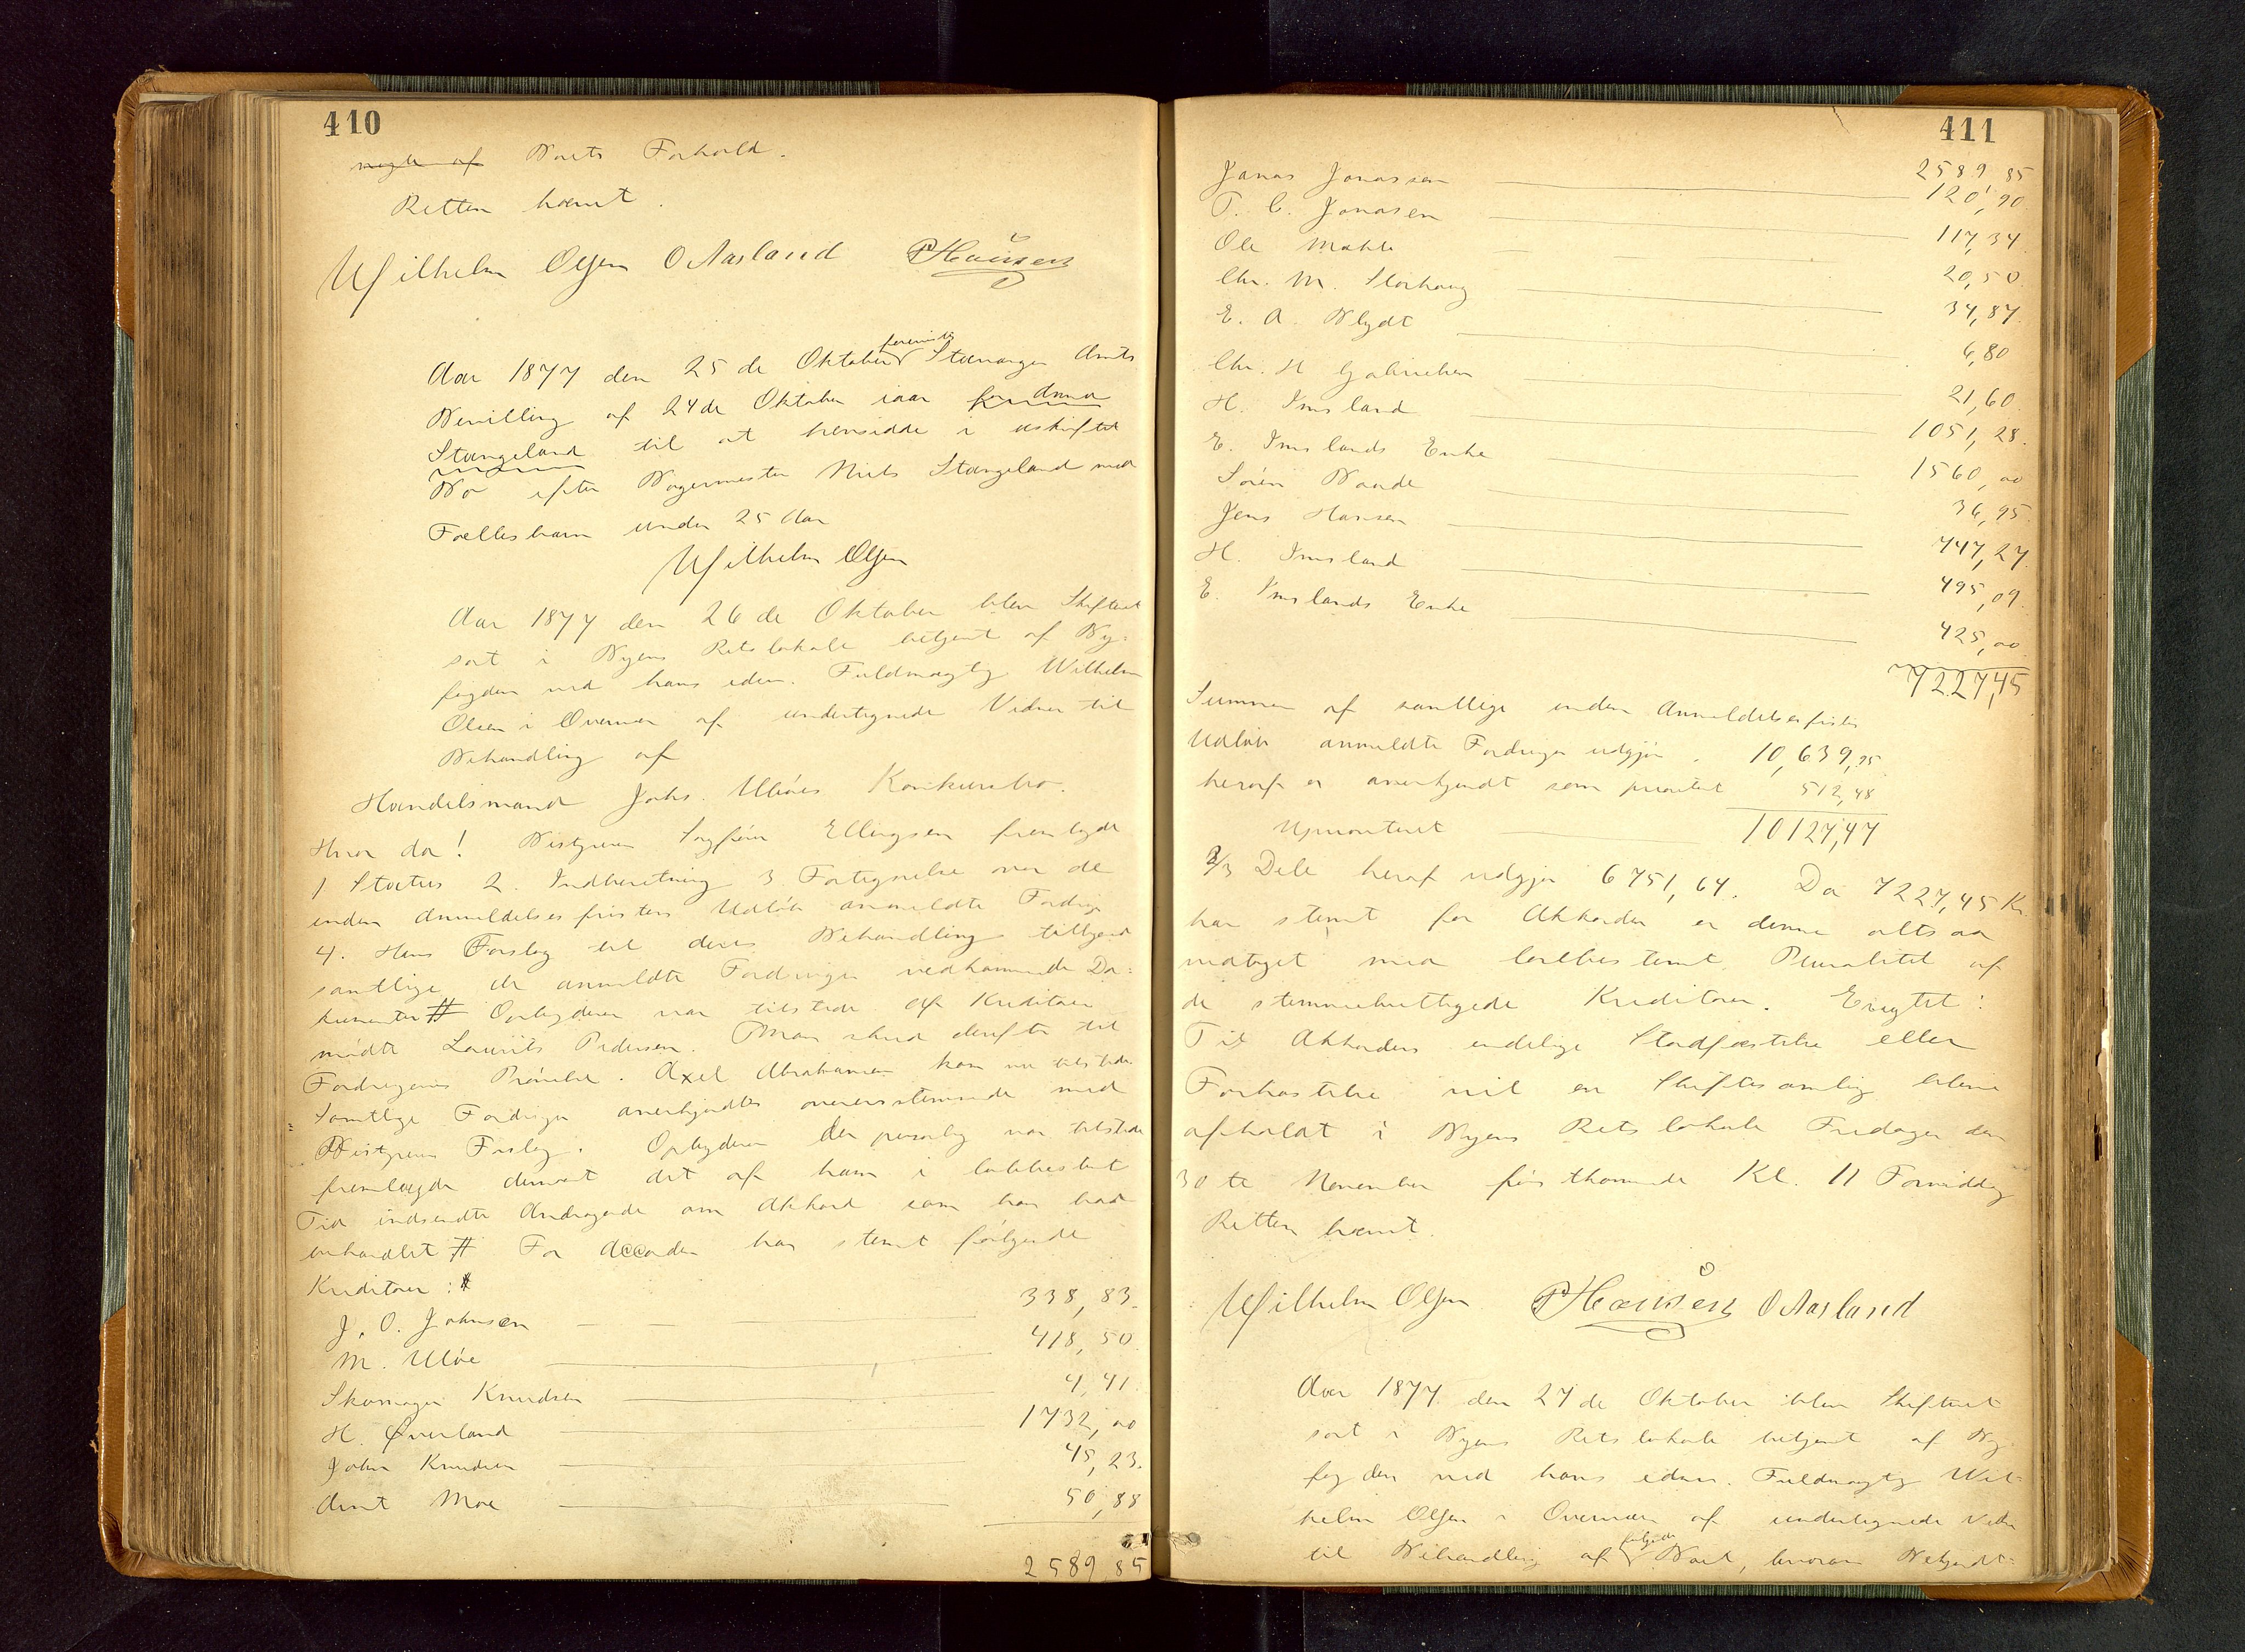 410
nogle af Boets Forhold.
Retten hævet.
Wilhelm Olsen O Aasland PHansen
Aar 1877 den 25 de Oktober Stavanger Amts
Bevilling af 24 de Oktober iaar for Anna
Stangeland til at hensidde i uskiftet
Bo efter Bøgermester Niels Stangeland med
Fællesbarn under 25 Aar
Wilhelm Olsen
Aar 1877 den 26 de Oktober blev Skifteret
sat i Byens Retslokale betjent af By-
fogden ved hans edsv. Fuldmægtig Wilhelm
Olsen i Overvær af undertegnede Vidner til
Behandling af
Handelsmand Johs. Ulöes Konkursbo.
Hvor da! Bestyreren Sagfører Ellingsen fremlagde
1 Status 2. Indberetning 3 Fortegnelse over de
inden Anmeldelsesfristens Udløb anmeldte Fordringer
4. Hans Forslag til deres Behandling tilligemed
samtlige de anmeldte Fordringer vedkommende Do-
kumenter # Opbyderen var tilstede Af Kreditorer
mødte Laurits Pedersen. Man skred derefter til
Fordringernes Prøvelse. Axel Abrahamsen kom nu tilstede
Samtlige Fordringer anerkjendtes overensstemmende med
Bestyrerens Forslag. Opbyderen der personlig var tilstede
fremlagde dernæst det af ham i lovbestemt
Tid indsendte Andragende om Akkord som han havde
erholdt # For Accorden har stemt følgende
Kreditorer :
J. O. Johnsen 338,83.
M. Ulöe 418,50.
Skomager Knudsen 4,41.
H. Överland 1732,00
John Knudsen 45,23.
Arnt Moe 50,88
2589,85
411
2589,85
Jonas Jonassen 120,90
T. C. Jonasen 117,34.
Ole Mæhle 20,50
Chr. M. Storhaug 34,87.
E. A. Blydt 6,80
Chr. H Gabrielsen 21,60
H. Imsland 1051,28.
E. Imslands Enke 1560,00
Sören Baade 36,95.
Jens Hansen 747,27.
H. Imsland 495,09.
E. Imslands Enke 425,00
7227,45
Summen af samtlige inden Anmeldelsesfristens
Udløb anmeldte Fordringer udgjør. 10,639,95
heraf er anerkjendt som prioritet 512,48
Uprioriteret 10127,47
2/3 Dele heraf udgjør 6751,64. Da 7227,45 Kr.
har stemt for Akkorden er denne altsaa
vedtaget med lovbestemt Pluralitet af
de stemmeberettigede Kreditorer. Eragtet:
Til Akkordens endelige Stadfæstelse eller
Forkastelse vil en Skiftesamling blive
afholdt i Byens Retslokale Fredagen den
30 te November førstkommende Kl. 11 Formiddag
Retten hævet.
Wilhelm Olsen PHansen O Aasland
Aar 1877 den 27 de Oktober blev Skifteret
sat i Byens Retslokale betjent af By-
fogden ved hans edsv. Fuldmægtig Wil-
helm Olsen i Overvær af undertegnede Vidner
til Behandling af følgende Boet, hvorom Bekjendt-